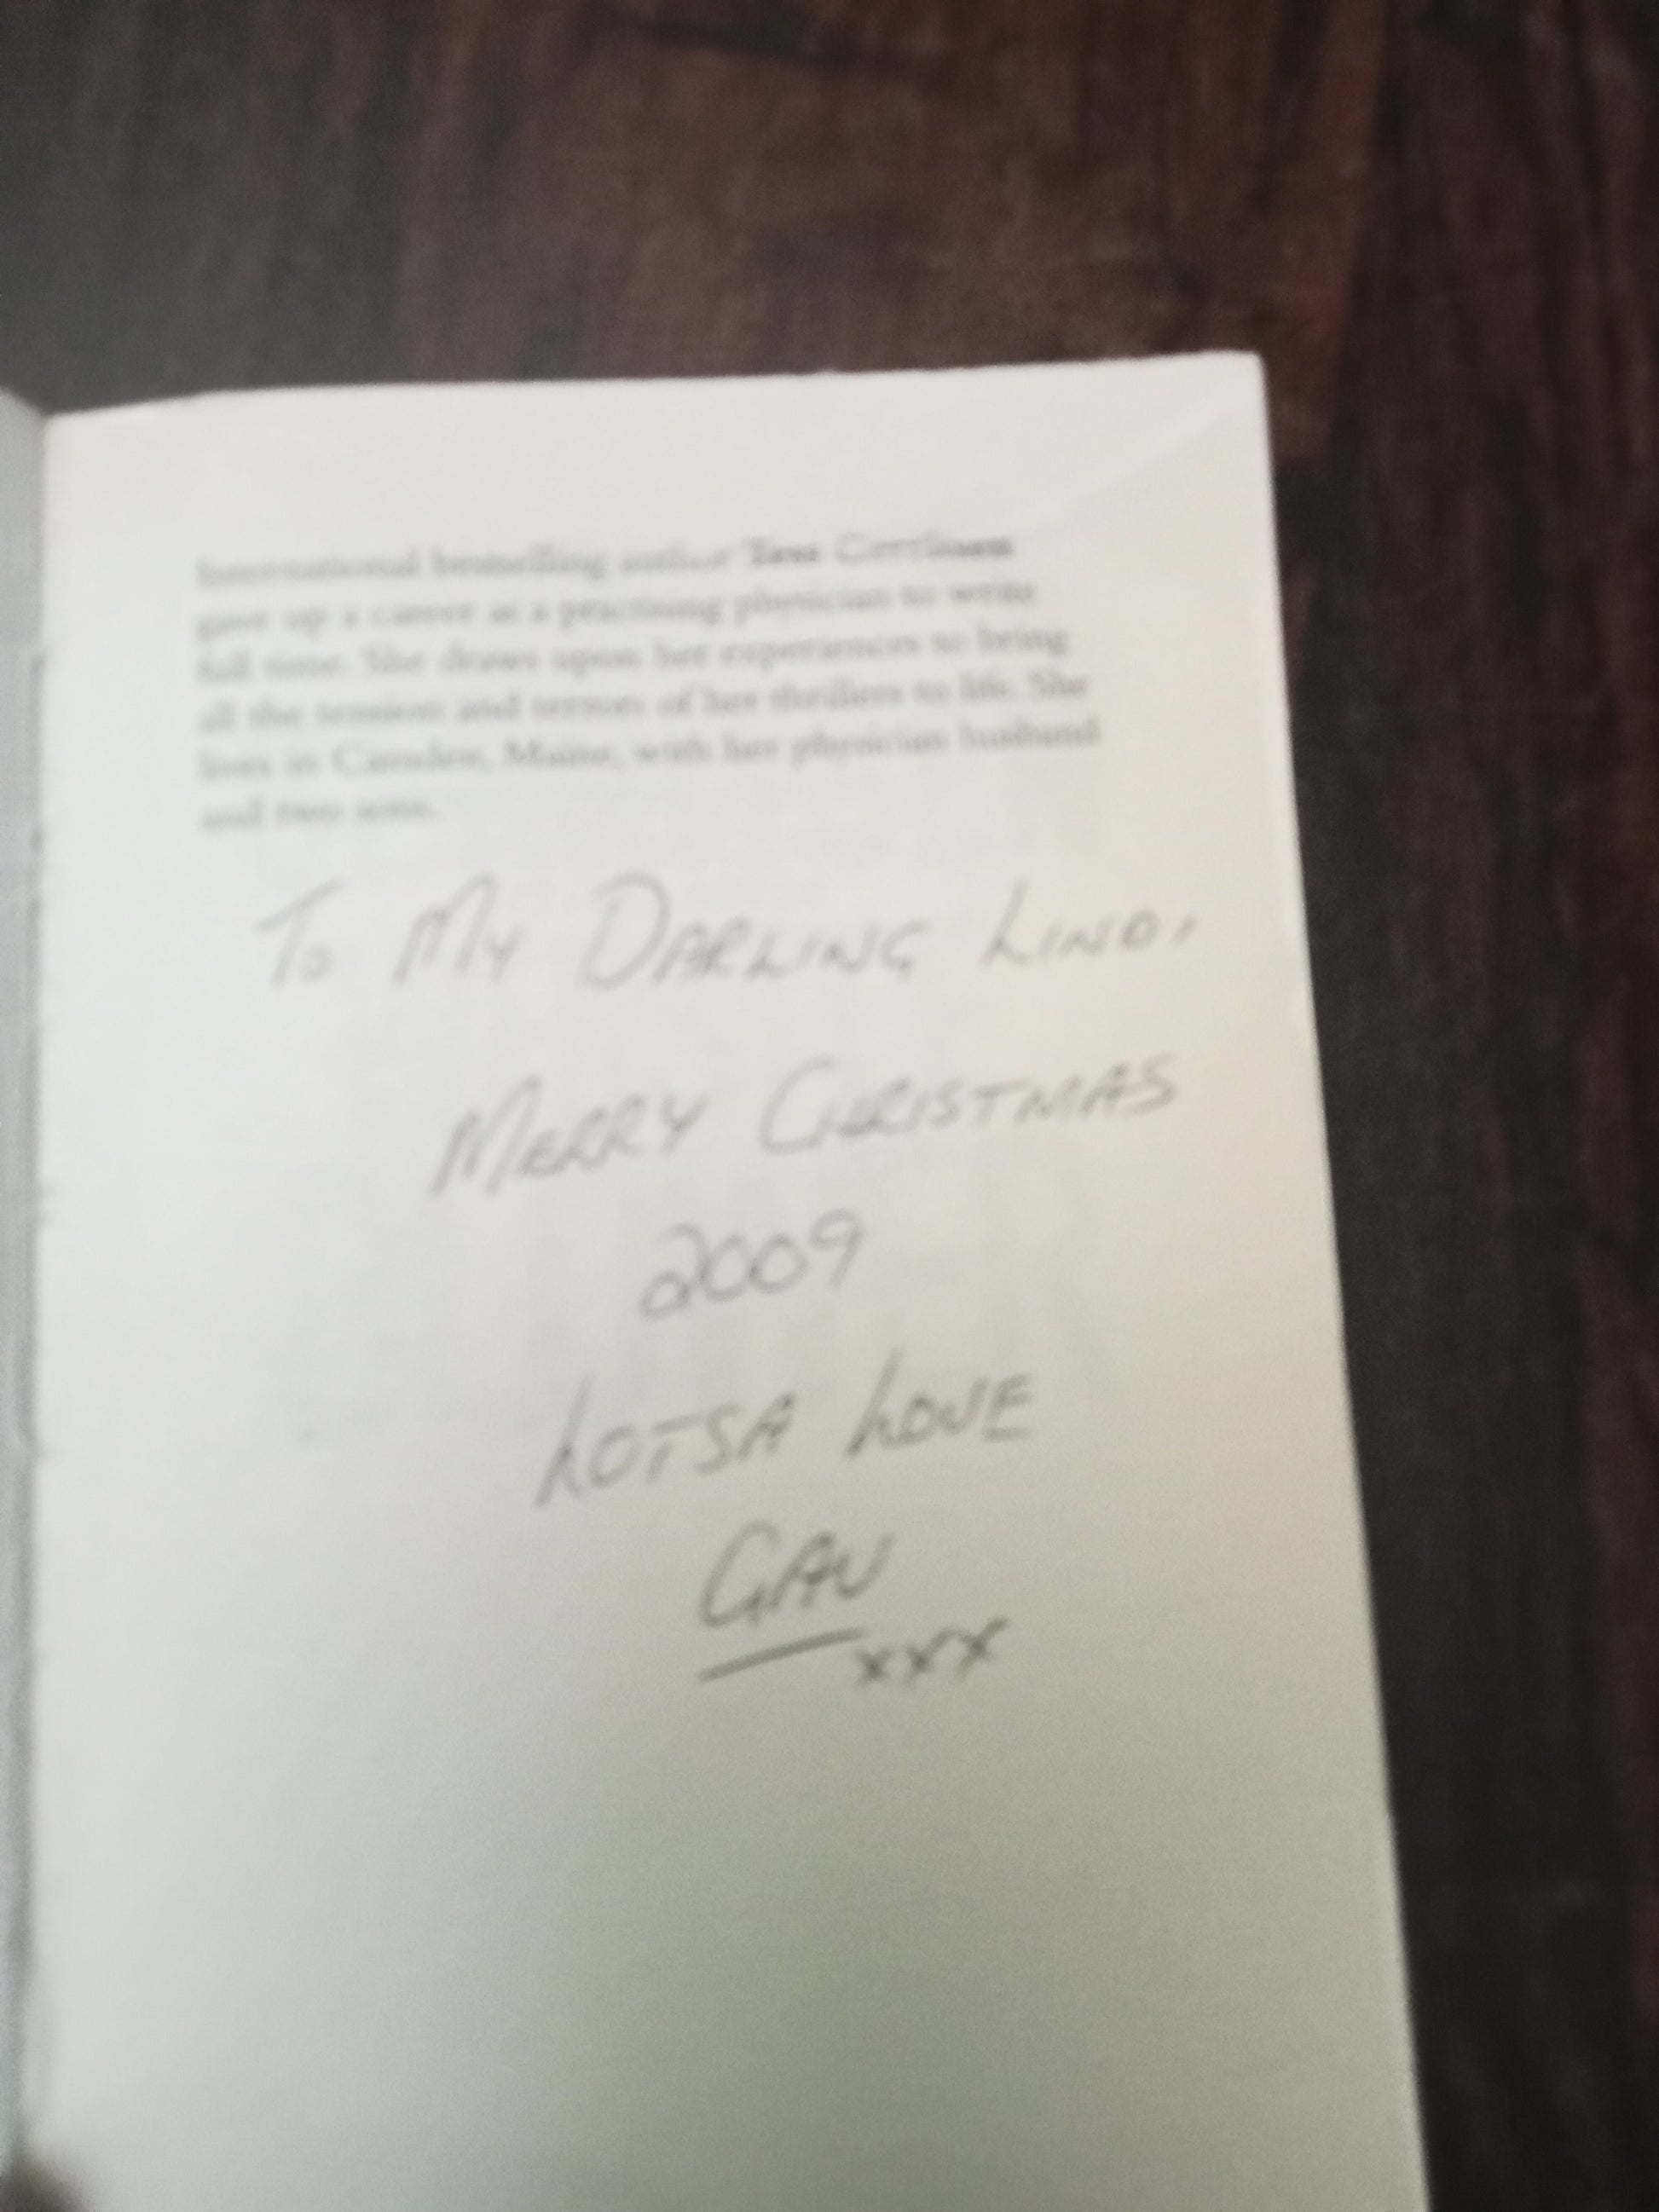 International bestselling author Tess Gerritsen
gave up a career as a practising physician to write
full time. She draws upon her experiences to bring
all the tension and terrors of her thrillers to life. She
lives in Camden, Maine, with her physician husband
and two sons.
To My DARLING LIND,
MERRY CHRISTMAS
2009
LOTSA LOVE
GAV
xxx